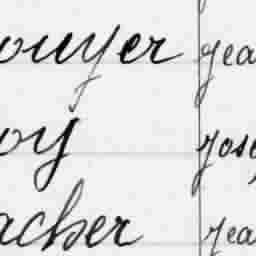 ouyer yea
oy Jose
acher Jea